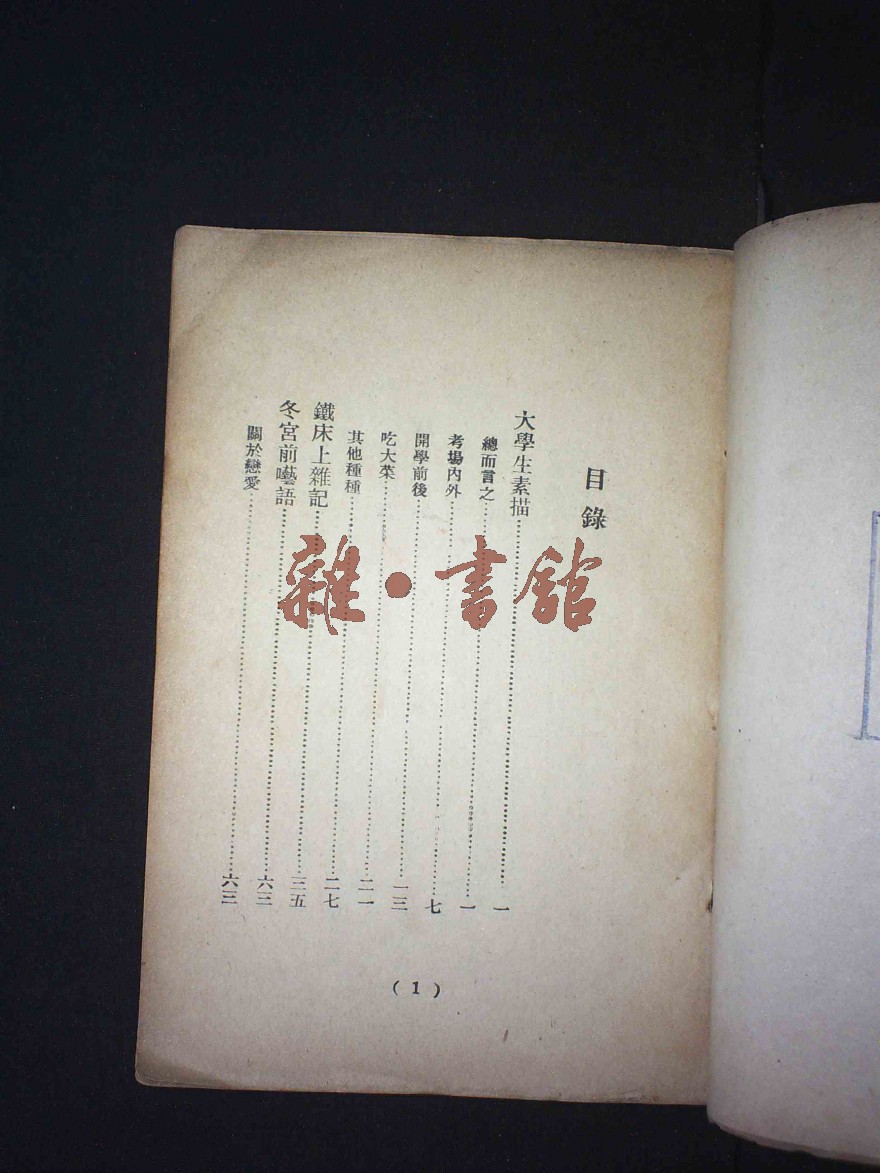 目錄
大學生素描……一
總而言之……一
考場內外……七
開學前後……一三
吃大菜……二一
其他種種……二七
鐵床上雜記……三五
冬宮前囈語……六三
關於戀愛……六三
(1)
雜·書館